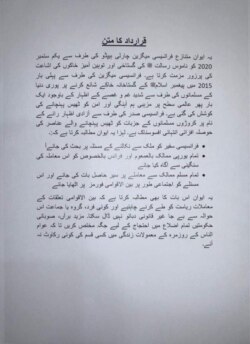 قرارداد کا متن
یہ ایوان متنازع فرانسیسی میگزین چارلی ہیبڈو کی طرف سے یکم ستمبر
2020 کو ناموس رسالت ﷺ کی گستاخی اور توہین آمیز خاکوں کی اشاعت
کی پرزور مذمت کرتا ہے۔ فرانسیسی میگزین کی طرف سے پہلی بار
2015 میں پیغمبر اسلام ﷺ کے گستاخانہ خاکے شائع کرنے پر پوری دنیا
کے مسلمانوں کی طرف سے شدید غم و غصے کے اظہار کے باوجود ایک
بار پھر عالمی سطح پر مذہبی ہم آہنگی اور امن کو ٹھیس پہنچانے کی
کوشش کی گئی ہے۔ فرانسیسی صدر کی طرف سے آزادی اظہار رائے کے
نام پر کروڑوں مسلمانوں کے جذبات کو ٹھیس پہنچانے والے عناصر کی
حوصلہ افزائی انتہائی افسوسناک ہے۔ لہذا یہ ایوان مطالبہ کرتا ہے کہ:
فرانسیسی سفیر کو ملک سے نکالنے کے مسئلہ پر بحث کی جائے؛
تمام یورپی ممالک بالعموم اور فرانس بالخصوص کو اس معاملہ کی
سنگینی سے آگاہ کیا جائے؛
تمام مسلم ممالک سے معاملے پر سیر حاصل بات کی جائے اور اس
مسئلے کو اجتماعی طور پر بین الاقوامی فورمز پر اٹھایا جائے
یہ ایوان اس بات کا بھی مطالبہ کرتا ہے کہ بین الاقوامی تعلقات کے
معاملات ریاست کو طے کرنے چاہئیے اور کوئی فرد، گروہ یا جماعت اس
حوالے سے بے جا غیر قانونی دباؤ نہیں ڈال سکتا۔ مزید برآں، صوبائی
حکومتیں تمام اضلاع میں احتجاج کے لیے جگہ مختص کریں تا کہ عوام
الناس کے روزمرہ کے معمولات زندگی میں کسی قسم کی کوئی رکاوٹ نہ
آئے۔